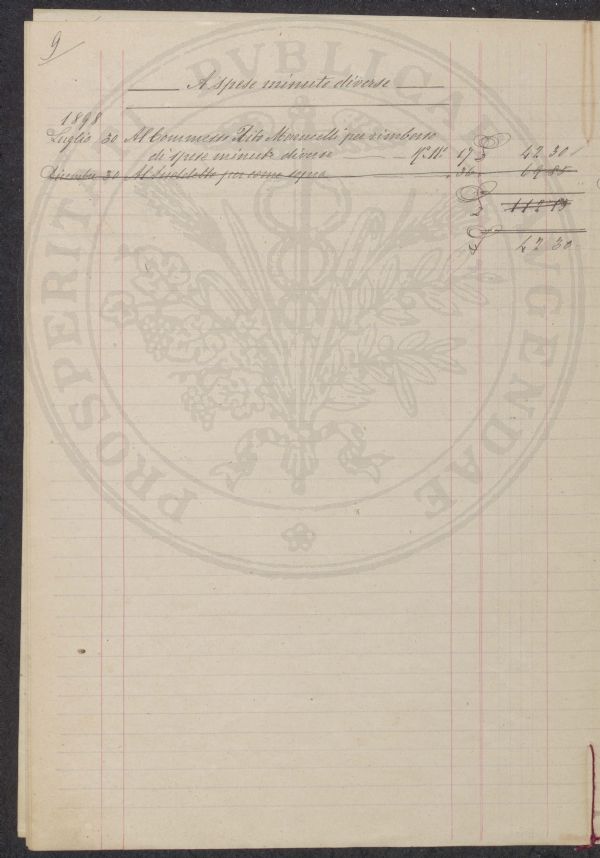 9
A spese minute diverse
1898
Luglio 30 Al Commesso Tito per rimborso
di spese minute diverse — Nº Mº 17 £ 42 30
Dicembre 30 Al Suddetto per come sopra " 36 " 69 85
£ 112 15
£ 42 30
PROSPERITATI PVBLICAE AVGENDAE